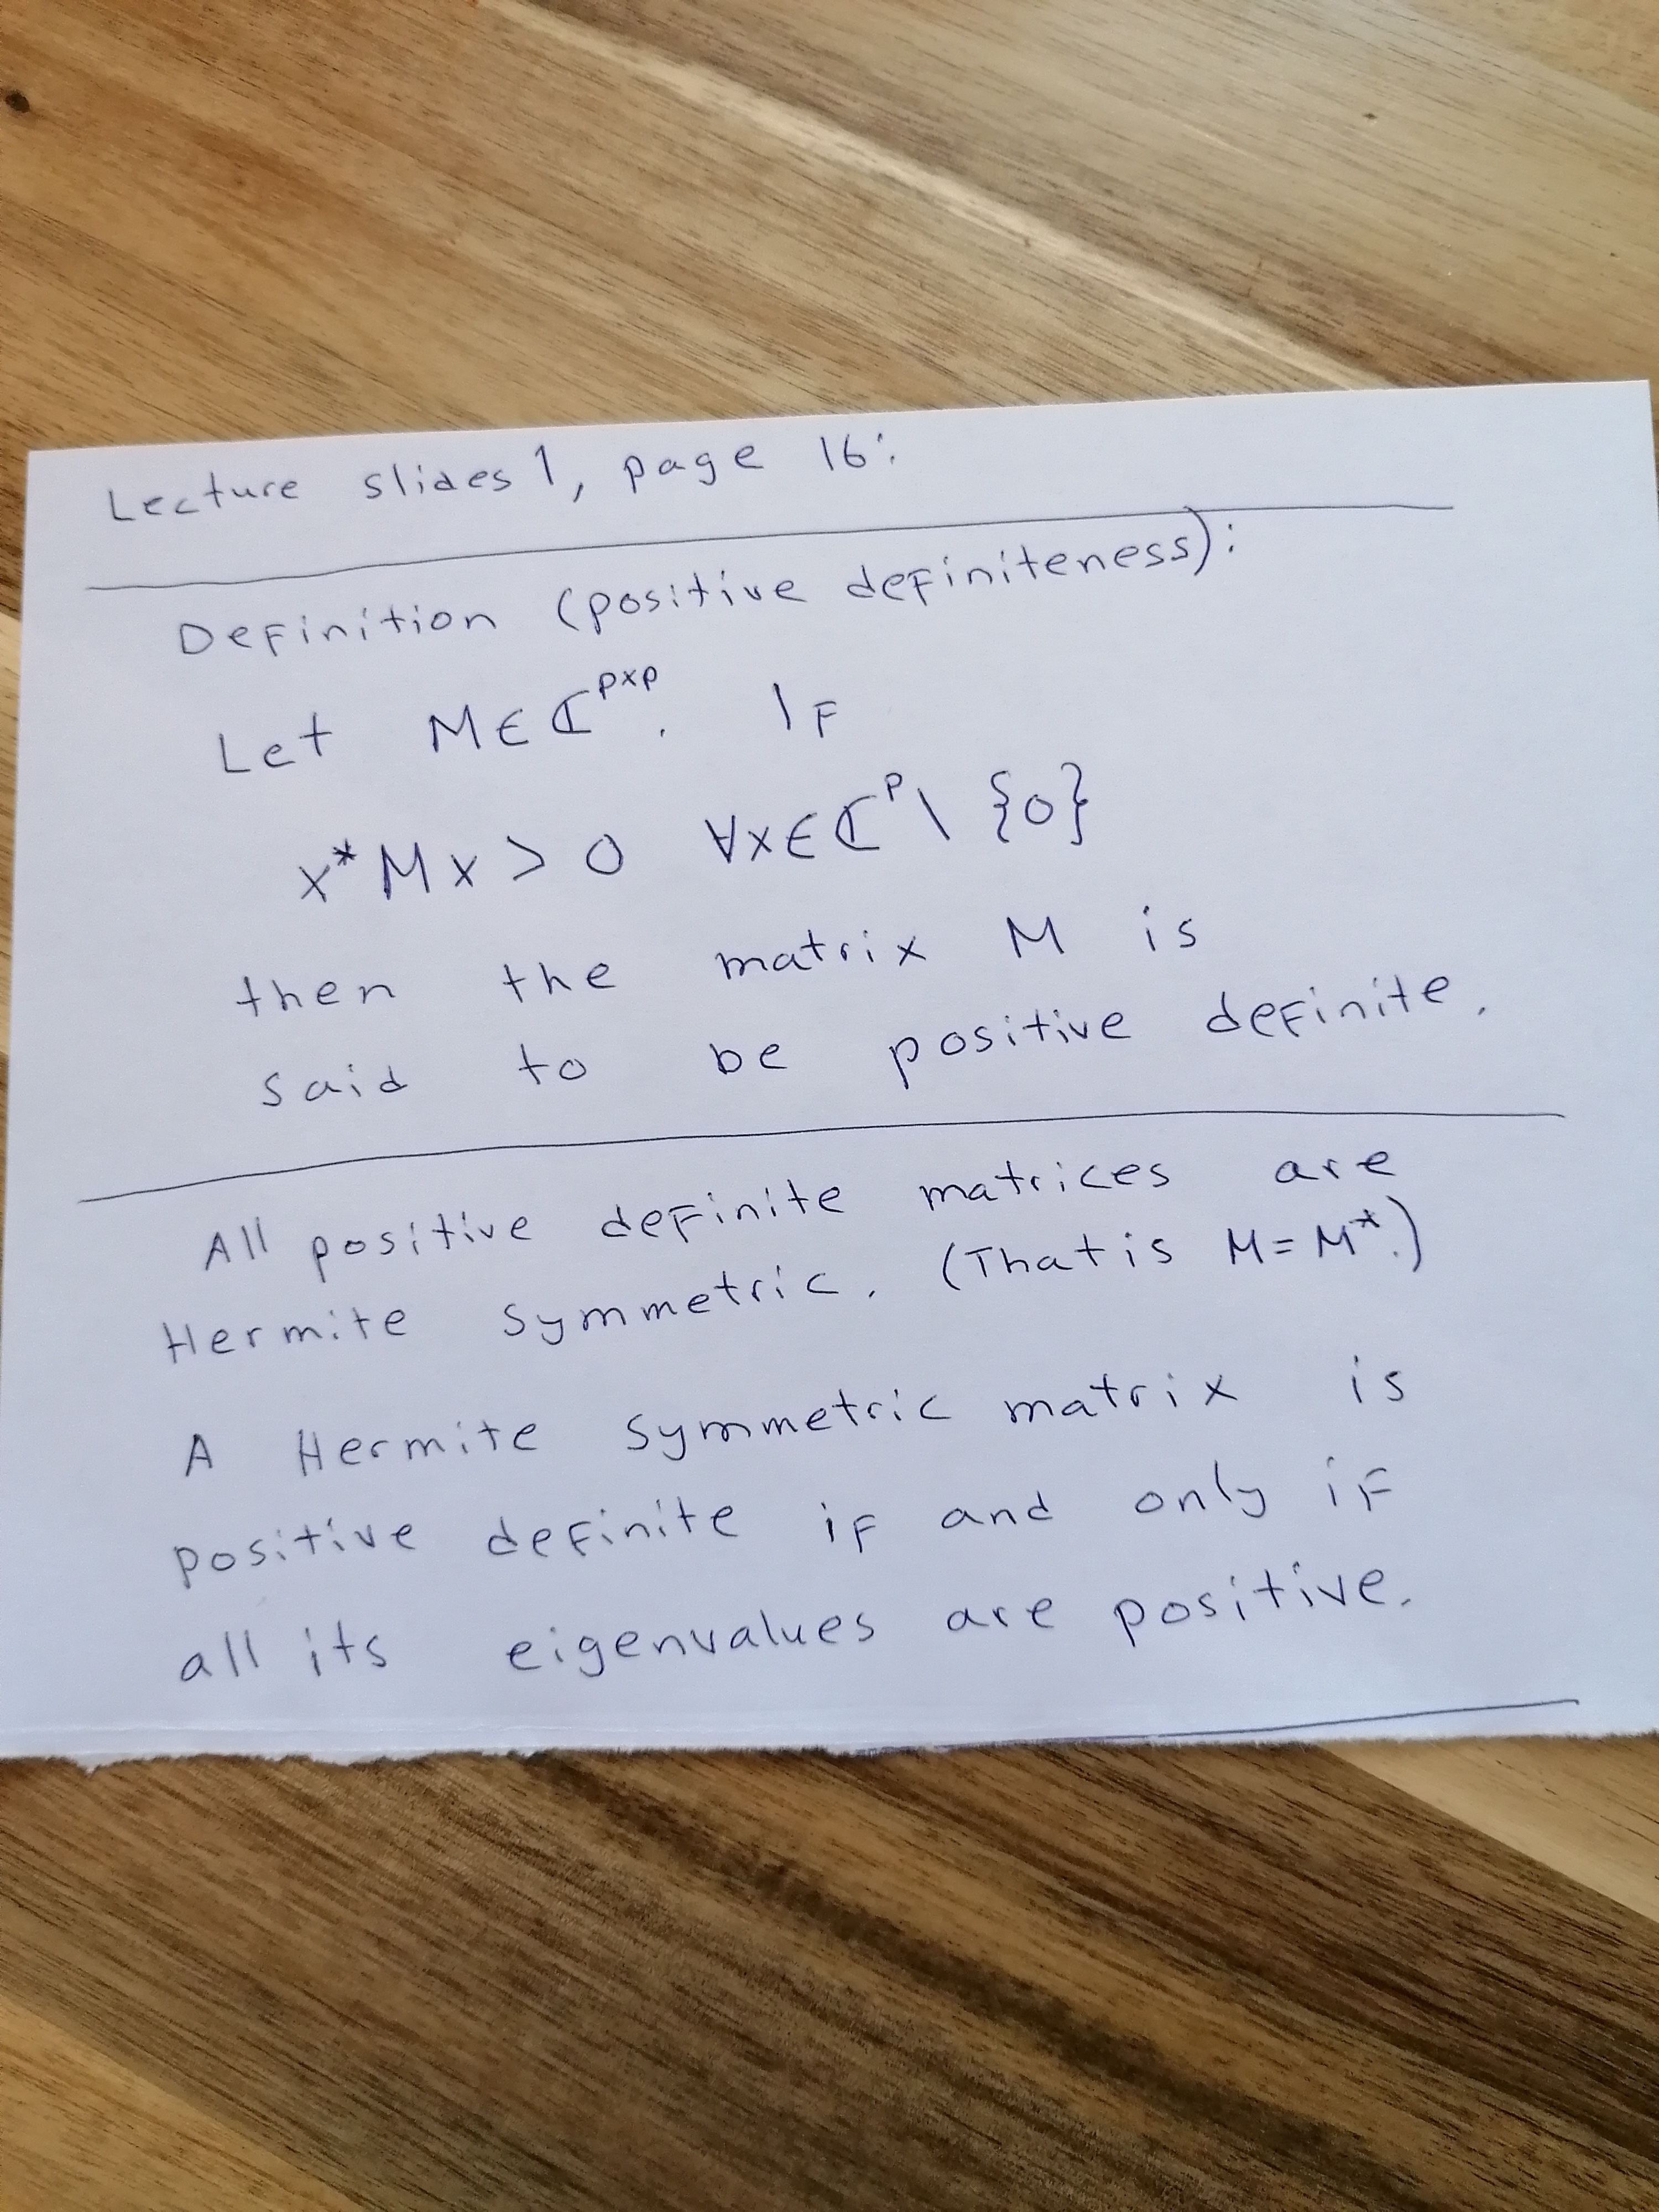 Lecture slides 1, page 16:
Definition (positive definiteness):
Let M∈ℂᵖˣᵖ. If
x*Mx > 0 ∀x∈ℂᵖ\ {0}
then the matrix M is
said to be positive definite.
All positive definite matrices are
Hermite symmetric. (That is M=M*.)
A Hermite symmetric matrix is
positive definite if and only if
all its eigenvalues are positive.